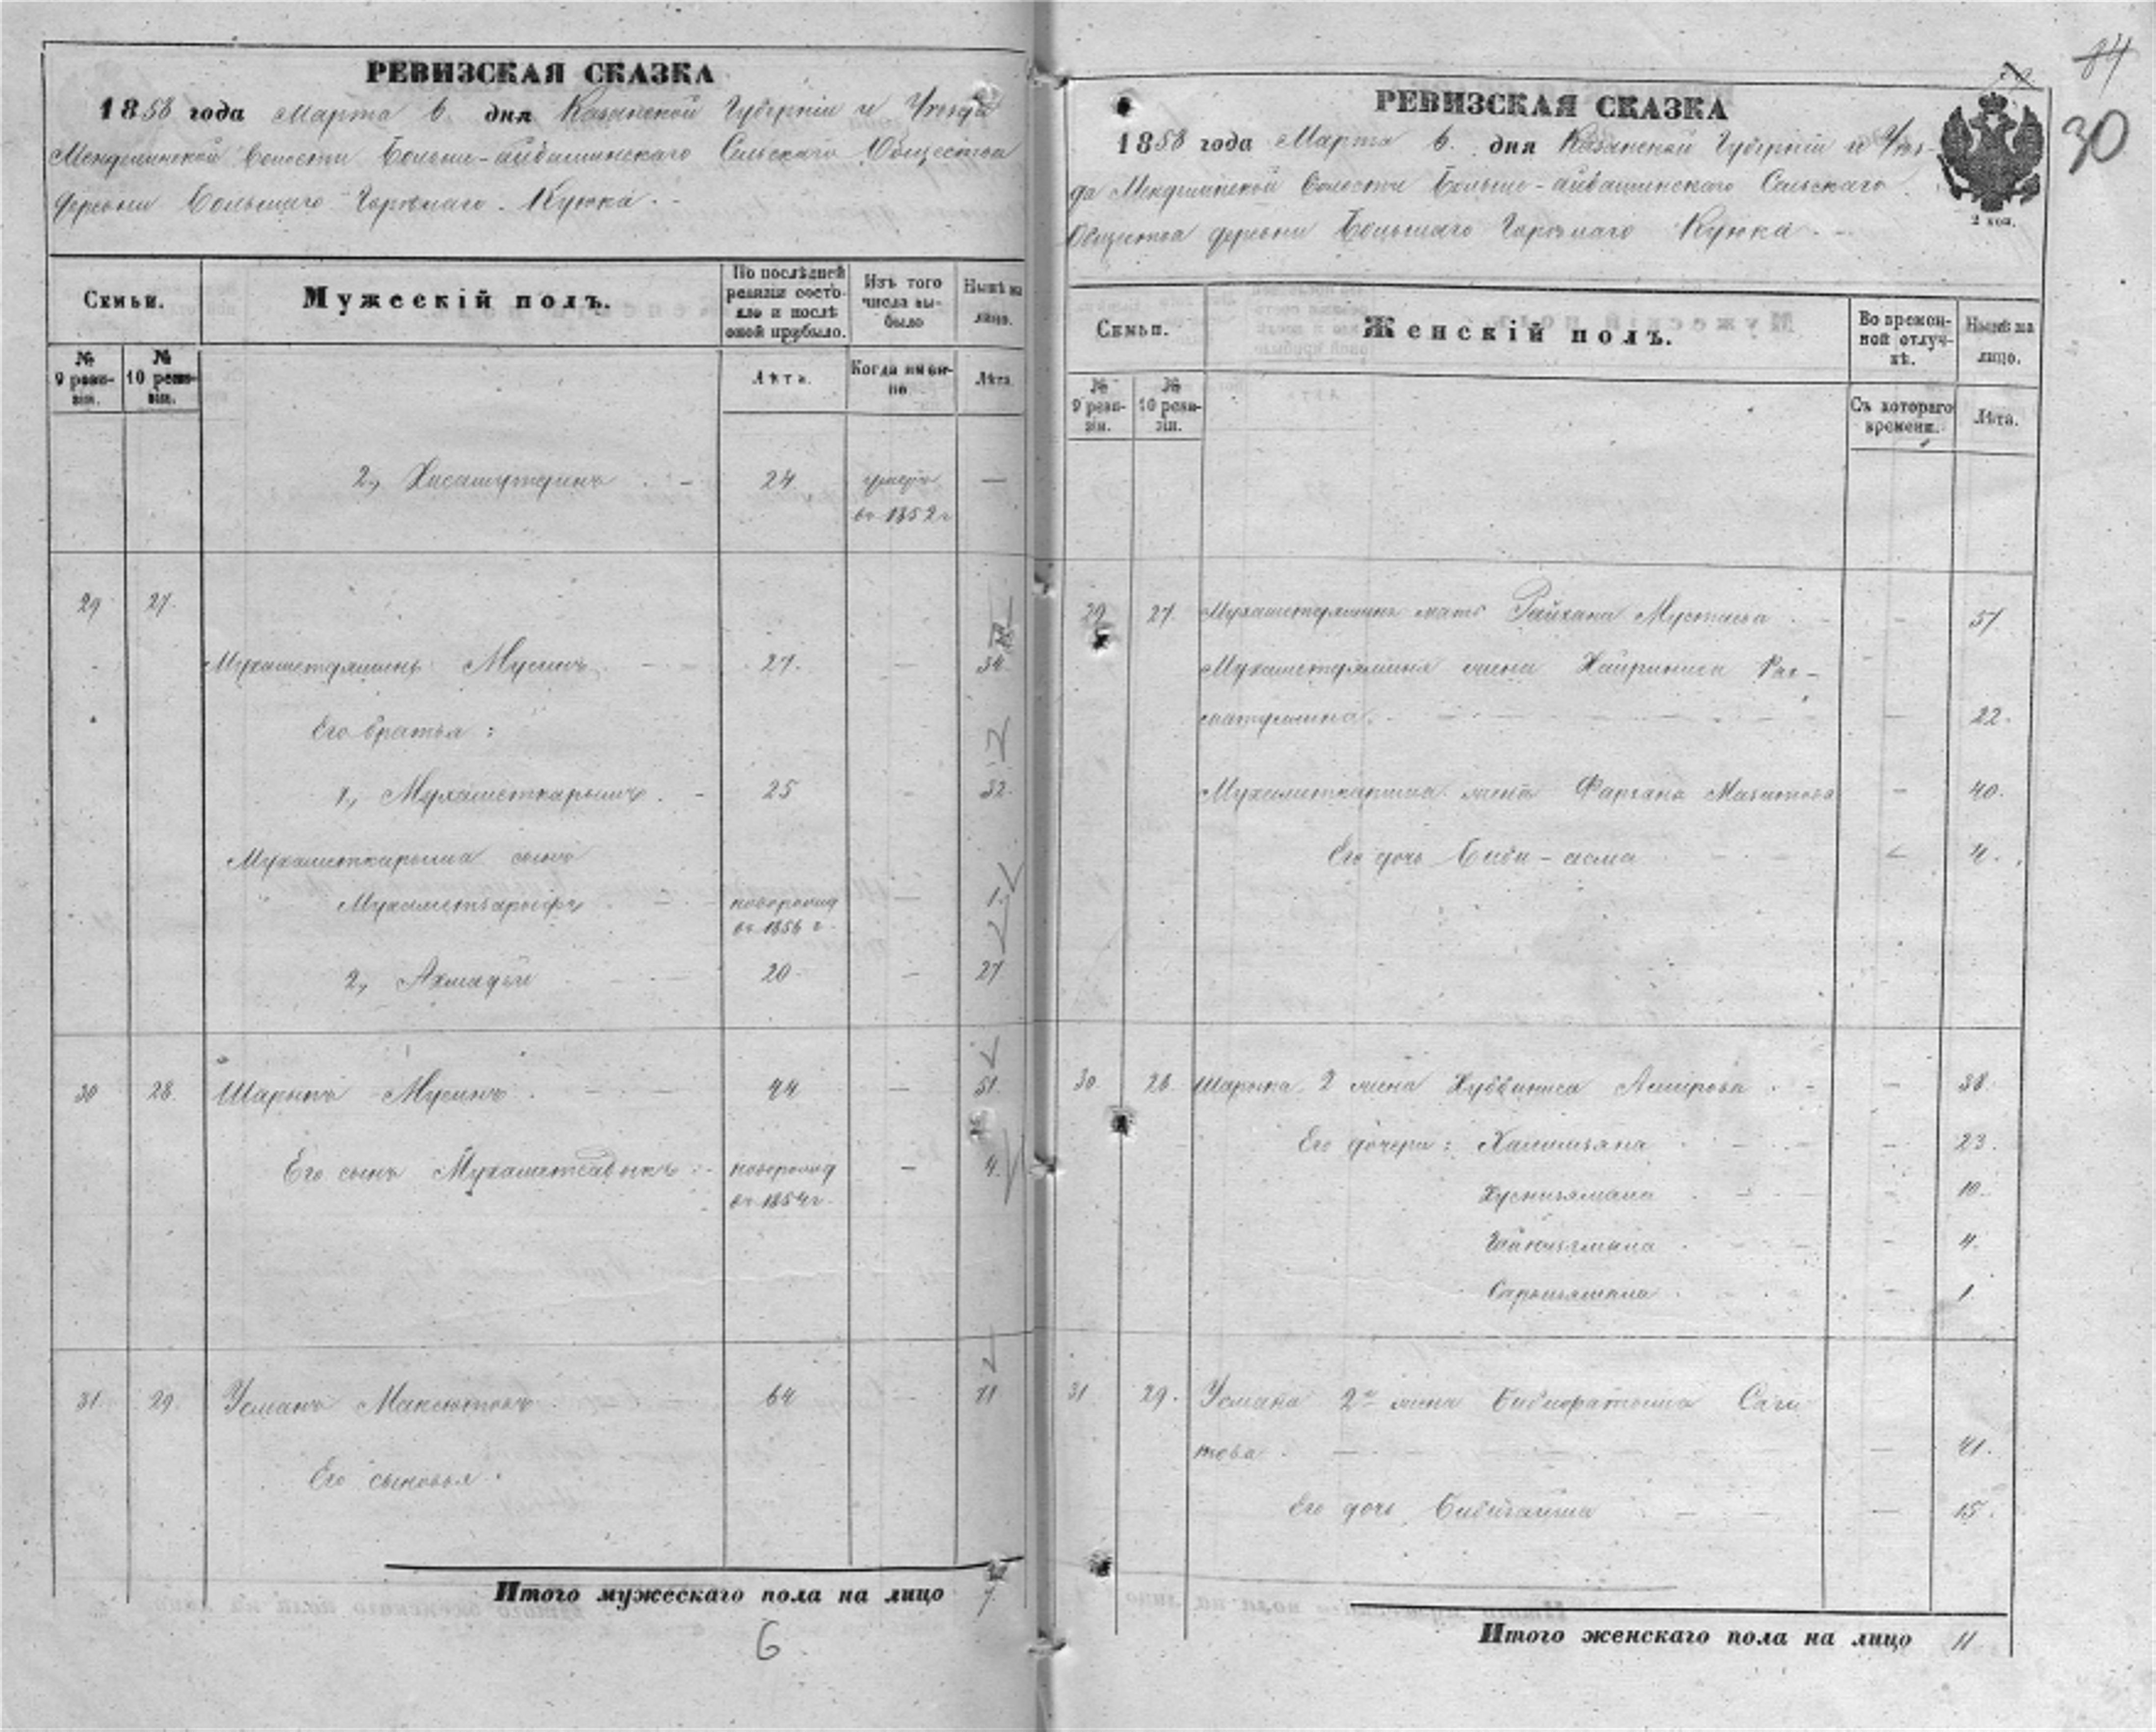 РЕВИЗСКАЯ СКАЗКА
1858 года Марта 6 дня Казанской Губерніи и Уѣзда
Менделинской Волости Больше-айбашинскаго Сельскаго Общества
деревни Большаго Куюка.
Семьи.
Мужескій полъ.
По послѣдней ревизіи состояло и послѣ оной прибыло.
Изъ того числа выбыло
Нынѣ на лицо.
№ 9 ревизіи.
№ 10 ревизіи.
Лѣта.
Когда именно
Лѣта.
2., 24 умеръ —
въ 1852 г
29 27.
Мухаметзяминъ Мусинъ 27. — 34.
Его братья:
1., Мухаметкаримъ 25 — 32.
Мухаметкарима сынъ
Мухаметзарифъ новорожд — 1.
въ 1856 г.
2., Ахмадѣй 20 — 27
30 28. Шарыпъ Мусинъ 44 — 51.
Его сынъ Мухаметсадыкъ новорожд — 4.
въ 1854 г.
31. 29. Усманъ Максютовъ 64 — 71
Его сыновья.
Итого мужескаго пола на лицо 7.
6
84
30
РЕВИЗСКАЯ СКАЗКА
1858 года Марта 6. дня Казанской Губерніи и Уѣз-
да Менделинской Волости Больше-айбашинскаго Сельскаго
Общества деревни Большаго Куюка.
2 коп.
Семьи.
Женскій полъ.
Во временной отлучкѣ.
Нынѣ на лицо.
№ 9 ревизіи.
№ 10 ревизіи.
Съ котораго времени.
Лѣта.
29 27. Мухаметзямина мать Райхана Мустаева — 57.
Мухаметзямина жена Хайриниса Рах-
матуллина. — 22.
Мухаметкарима жена Фархана — 40.
Его дочь Биби-асма — 4.
30. 28. Шарыпа 2 жена Амирова — 38.
Его дочери: — 23.
Хуснизямала — 10.
— 4.
— 1
31 29. Усмана 2я жена Бибифатыма Саги
това — 41.
Его дочь Бибигайша — 15.
Итого женскаго пола на лицо 11